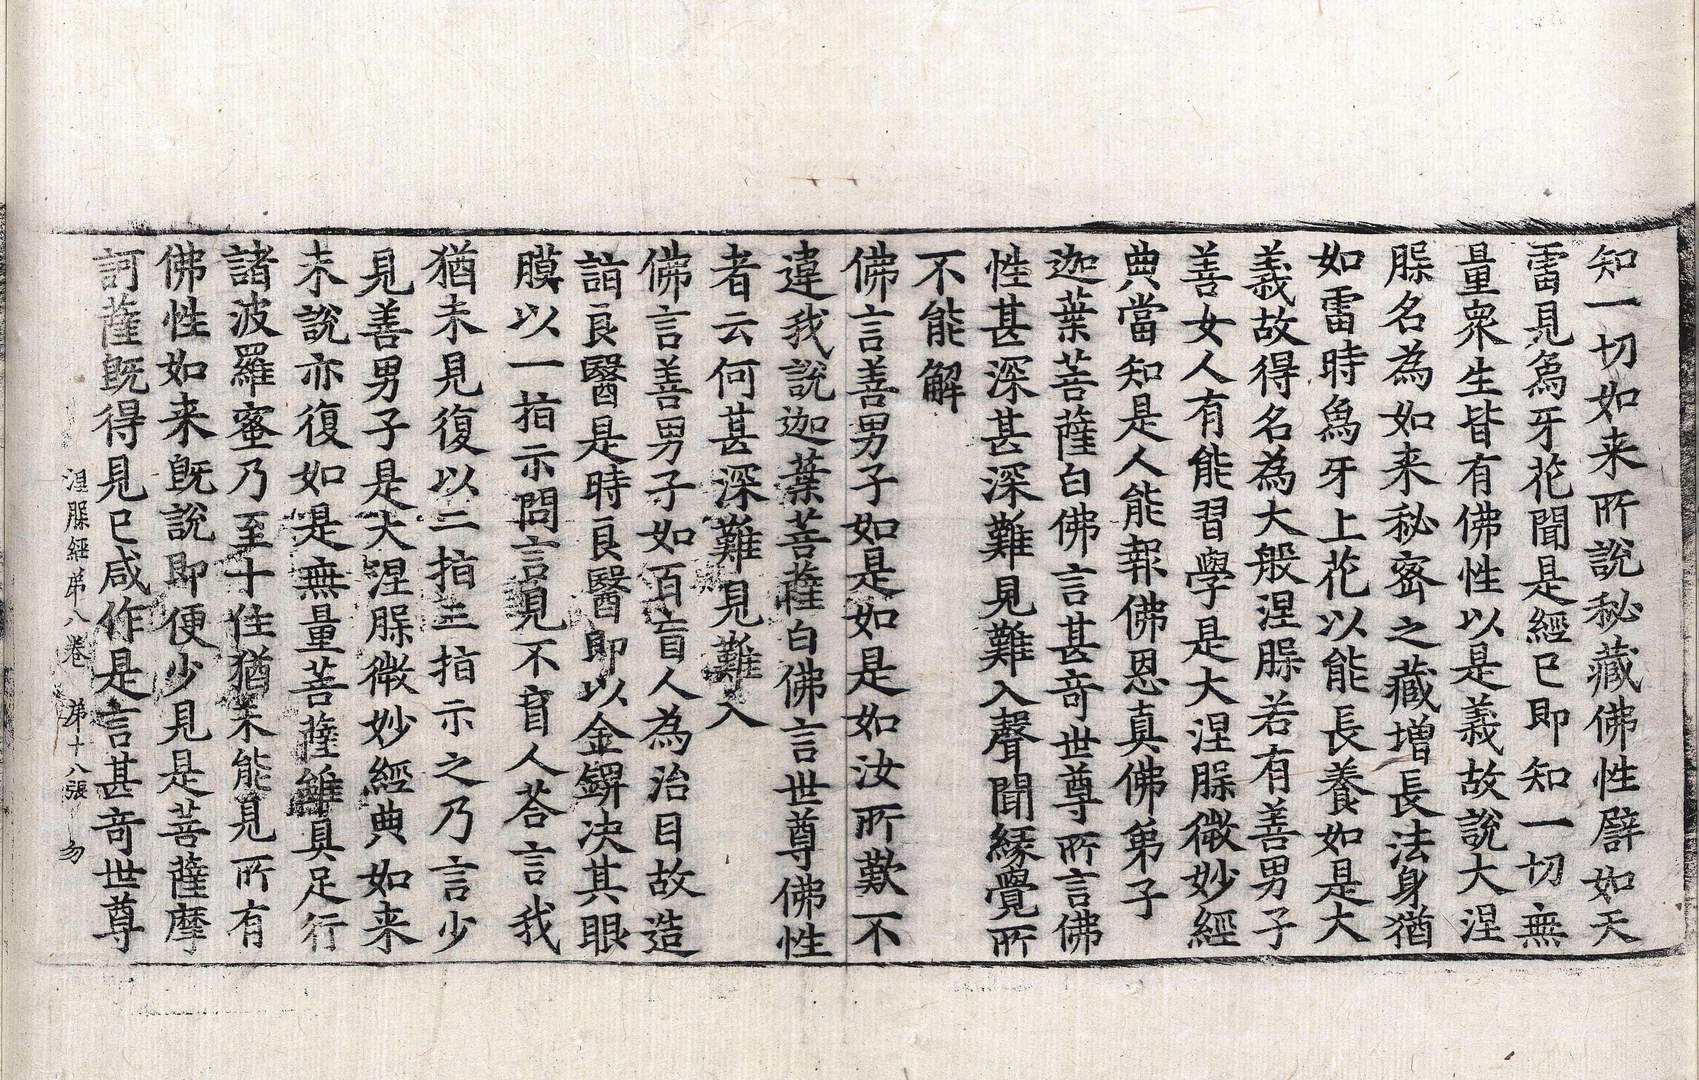 知一切如来所說秘藏佛性譬如天
雷見為牙花聞是經已即知一切無
量衆生皆有佛性以是義故說大涅
牃名為如来秘密之藏增長法身猶
如雷時為牙上花以能長養如是大
義故得名為大般涅牃若有善男子
善女人有能習學是大涅牃微妙經
典當知是人能報佛恩真佛弟子
迦葉菩薩白佛言甚奇世尊所言佛
性甚深甚深難見難入聲聞緣覺所
不能解
佛言善男子如是如是如汝所歎不
違我說迦葉菩薩白佛言世尊佛性
者云何甚深難見難入
佛言善男子如百盲人為治目故造
詣良醫是時良醫即以金錍決其眼
膜以一指示問言見不盲人荅言我
猶未見復以二指三指示之乃言少
見善男子是大涅牃微妙經典如来
未說亦復如是無量菩薩雖具足行
諸波羅蜜乃至十住猶未能見所有
佛性如来旣說即便少見是菩薩摩
訶薩旣得見已咸作是言甚奇世尊
涅牃經弟八卷 弟十八張 勿